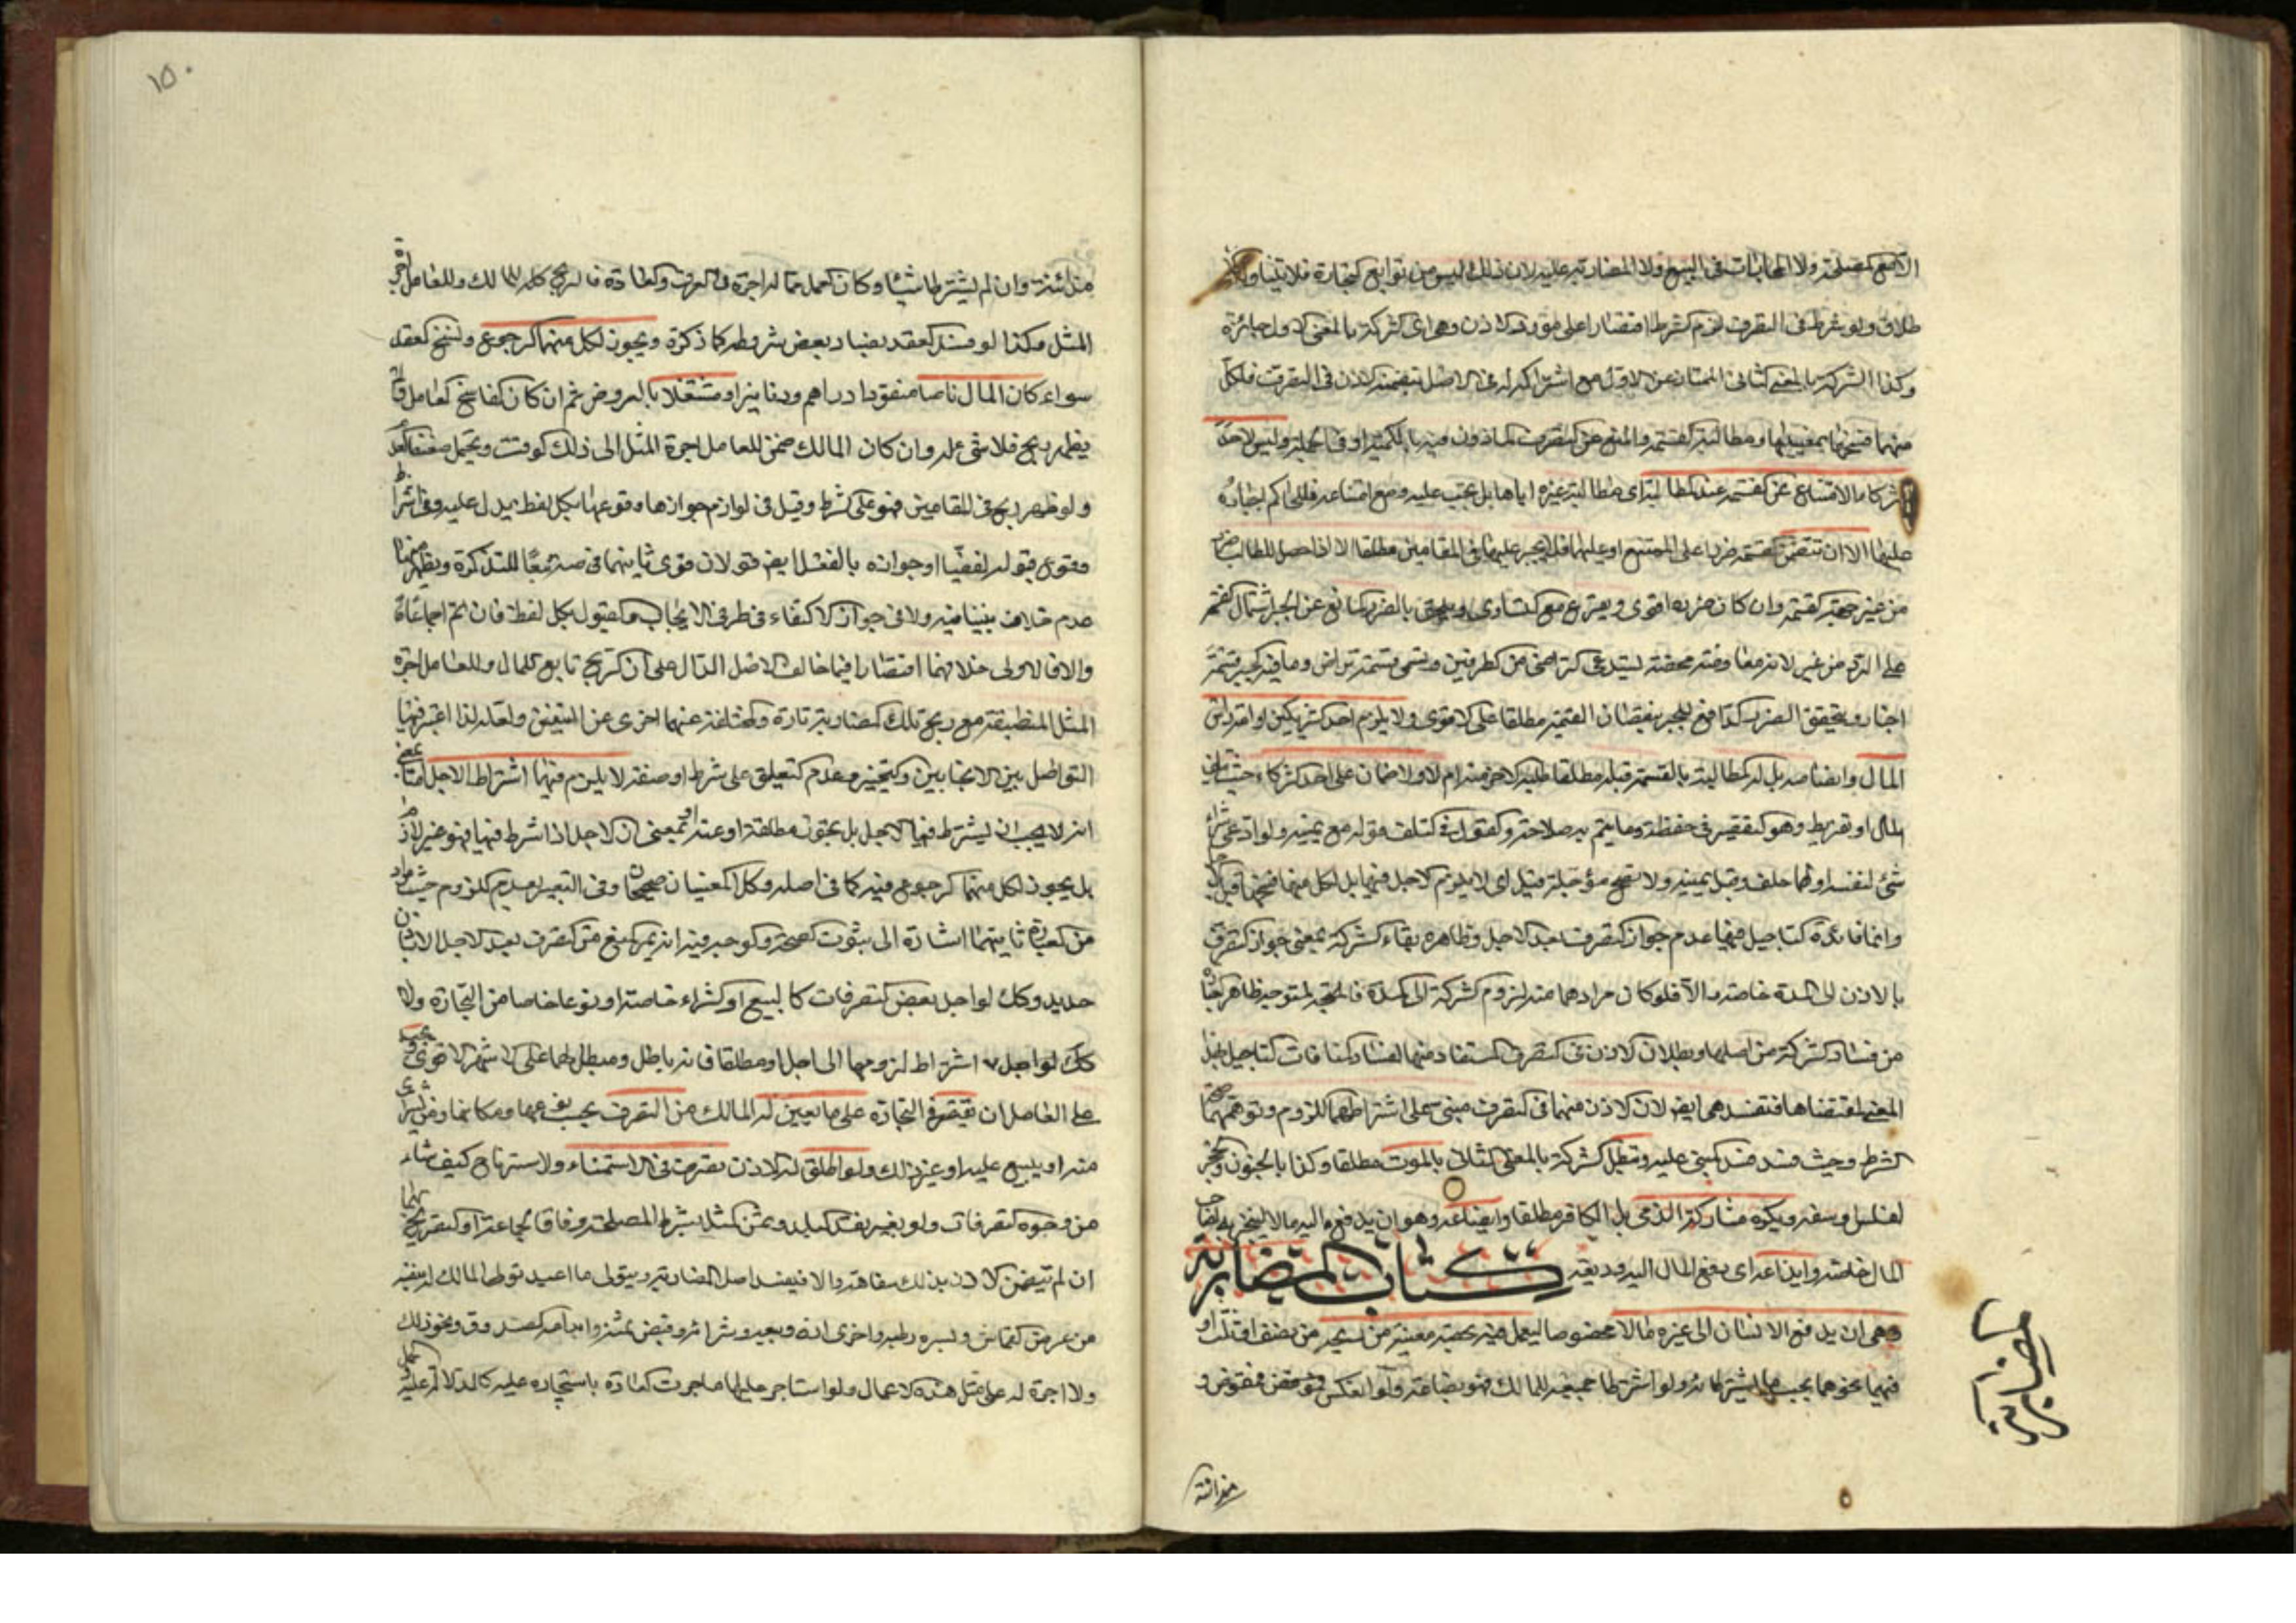 الا مع المصلحة ولا المحابات في البيع ولا المضاربة عليه لان ذلك ليس من توابع التجارة فلا يتناوله
طلاق ولو شرط في التصرف لزم الشرط اقتصارا على مورد الاذن وهي اي الشركة بالمعنى الاول جائزة
وكذا الشركة بالمعنى الثاني الممتاز عن الاول مع اشتراكه له في الاصل بتضمنه الاذن في التصرف فلكل
منهما فسخها بمعنييها ومطالبة القسمة والمنع عن التصرف الماذون فيه بالكتمة او وليس لاحد
الشركاء الامتناع عن القسمة عند المطالبة اي مطالبة غيره اياها بل يجب عليه ومع امتناعه فللحاكم اجباره
عليها الا ان تتضمن القسمة ضررا على الممتنع او عليهما فلا يجبر عليها في المقامين مطلقا الا اذا حصل للطالب ضرر
من غير جهة القسمة وان كان ضرره اقوى ويقرع مع التساوي ويلحق بالضرر المانع عن الجبر اشتمال القسمة
على الرد من غير لانه معاوضة محضة يستدعي التراضي من الطرفين وتسمى قسمة تراض وما فيه الجبر قسمة
اجبار ويتحقق الضرر الدافع للجبر بنقصان القيمة مطلقا على الاقوى ولا يلزم احد الشريكين او اقراض
المال وانضاضه بل له المطالبة بالقسمة قبله مطلقا طلبه الاخر منه ام لا ولا ضمان على احد الشركاء حيث
المال او تفريط وهو التقصير في حفظه وما يتم به صلاحه والقول في التلف قوله مع يمينه ولو ادعى شراء
شئ لنفسه او لهما حلف وقبل بيمينه ولا تصح مؤجلة قيل اي لا يلزم الاجل فيها بل لكل منهما فسخها قبل
وانما فائدة التاجيل فيها عدم جواز التصرف بعد الاجل وظاهره بقاء الشركة بمعنى جواز التصرف
بالاذن الى المدة خاصة والا فلو كان مرادهما منه لزوم الشركة الى المدة فالمتجه المتوجه ظاهر
من فساد الشركة من اصلها وبطلان الاذن في التصرف المستفاد منها لفساد لمنافات التاجيل بهذا
المعنى لمقتضاها فتفسد هي ايض لان الاذن منهما في التصرف مبني على اشتراطهما اللزوم وتوهمهما صحة
الشرط وحيث فسد فسد المبنى عليه وتبطل الشركة بالمعنى الثاني بالموت مطلقا وكذا بالجنون والحجر
لفلس وسفه ويكره مشاركة الذمي بل الكافر مطلقا وابضاعه وهو ان يدفع اليه مالا يتجر به لصاحب
المال خاصة وايداعه اي دفع المال اليه وديعة كتاب المضاربة
وهي ان يدفع الانسان الى غيره مالا مخصوصا ليعمل فيه بحصة معينة من ربحه من نصف او ثلث او
نحوهما بحسب ما يشترطانه ولو اشترطا جميعه للمالك فهو بضاعة ولو انعكس فهو قرض مفوض و
كتاب المضاربة
منه انشئة
١٥٠
منه انشئة وان لم يشترطا شيئا وكان العمل مما له اجرة في العرف والعادة فالربح كله للمالك وللعامل اجرة
المثل وكذا لو فسد العقد بفساد بعض شروطه كما ذكره ويجوز لكل منهما الرجوع وفسخ العقد
سواء كان المال ناضا منقودا دراهم ودنانير او مشتغلا بالعروض ثم ان كان الفاسخ العامل ولم
يظهر ربح فلا شئ له وان كان المالك ضمن للعامل اجرة المثل الى ذلك الوقت ويحتمل
ولو ظهر ربح في المقامين فهو على الشرط وقيل في لوازم جوازها وقوعها بكل لفظ يدل عليه وفي اشتراط
وقوع قبوله لفظيا او جوازه بالفعل ايض قولان قوى ثانيهما في ضة تبعا للتذكرة ويظهر منها
عدم خلاف بيننا فيه ولا في جواز الاكتفاء في طرفي الايجاب والقبول بكل لفظ فان تم اجماعا
والا فالاولى خلافهما اقتصارا فيما خالف الاصل الدال على ان الربح تابع للمال وللعامل اجرة
المثل المنطبقة مع ربح تلك المضاربة تارة والمختلفة عنها اخرى عن المتيقن ولعله لذا اعتبر فيها
التواصل بين الايجابين والتنجيز وعدم التعليق على شرط او صفة لا يلزم فيها اشتراط الاجل
انه لا يجب ان يشترط فيها الاجل بل يجوز مطلقة او عنه او بمعنى ان الاجل اذا اشترط فيها فهو غير لازم
بل يجوز لكل منهما الرجوع فيه كما في اصله وكل المعنيان صحيحان وفي التعبير بعدم اللزوم حيث
من العبارة ثانيهما اشارة الى ثبوت الصحة والوجه فيه انه يثمر المنع من التصرف بعد الاجل الا باذن
جديد وكك لو اجل بعض التصرفات كالبيع او الشراء خاصة او نوعا خاصا من التجارة ولا
كك لو اجل لا اشتراط لزومها الى اجل او مطلقا فانه باطل ومبطل لها على الاشهر الاقوى ويجب
على العامل ان يقتصر في التجارة على ما يعين له المالك من التصرف بحسب نوعها ومكانها ومن يشترى
منه او يبيع عليه او غير ذلك ولو اطلق له الاذن تصرف في الاستنماء والاسترباح كيف شاء
من وجوه التصرفات ولو بغير نقد البلد وثمن المثل بشرط المصلحة وفاقا لجماعة او التصريح بهما
ان لم يتضمن الاذن بذلك سفاهة والا فيفسد اصل المضاربة ويتولى ما اعتيد تولى المالك له بنفسه
من عرض القماش ونشره وطيه واخرى انه وبيعه وشرائه وقبض ثمنه وايداعه الصندوق ونحو ذلك
ولا اجرة له على مثل هذه الاعمال ولو استاجر عليها ما جرت العادة باستيجاره عليه كالدلالة